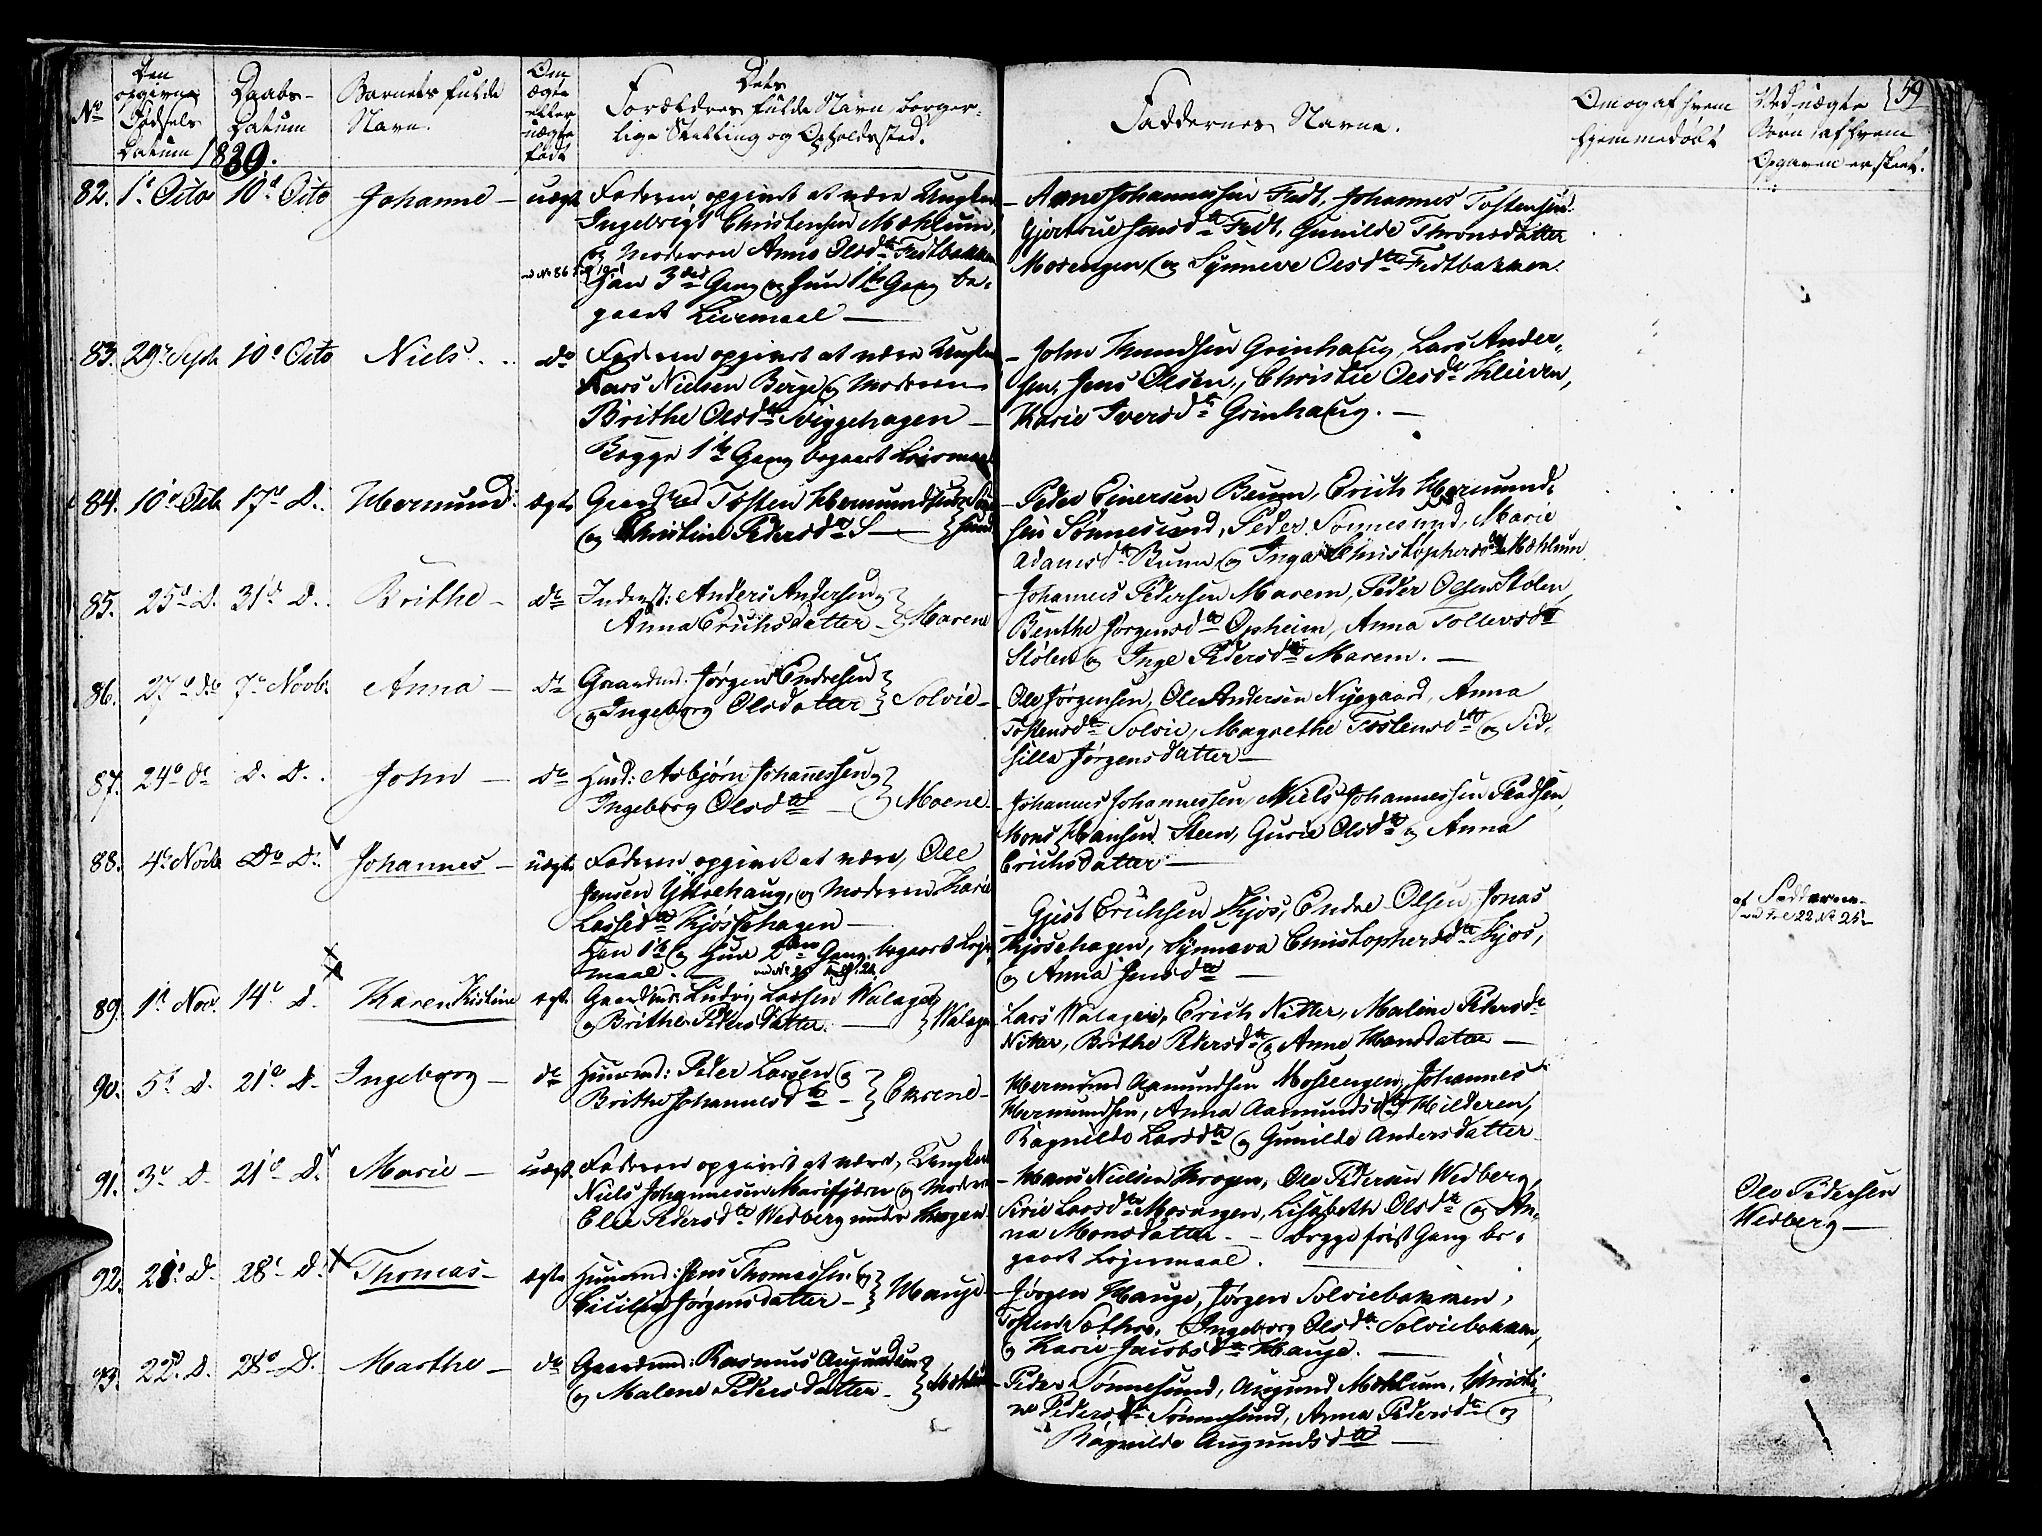 59
No
Den opgivne Fødsels Datum
Daabs- Datum
Barnets fulde Navn.
Om ægte eller uægte født
Dets Forældres fulde Navn borger-
lige Stilling og Opholdssted.
Faddernes Navne.
Om og af hvem
hjemmedøbt
Ved uægte
Børn af hvem
Opgaven er skeet.
1839.
82. 1d Octo 10d Octo Johanne – uægt. Faderen opgivet at være Ungkarl
Ingebrigt Christensen Mæhlum,
og Moderen Anne Olsdtr Fedtbakken
han 3die Gang og hun 1te Gang be-
gaaet Leiermaal –
– Arne Johannessen Fedt, Johannes Tostensen
Gjertrue Jensdtr Fedt, Gunilde Thronsdatter
Morengen, og Synneve Olsdtr Fedtbakken.
83. 29d Sept 10d Octo Niels. do Faderen opgivet at være Ungkarl
Lars Nielsen Berge og Moderen
Brithe Olsdtr Sviggehagen –
Begge 1te Gang begaaet Leiermaal
– John Knudsen Grinhaug, Lars Ander-
sen, Jens Olsen, Christie Olsdtr Kleiven,
Karie Iversdtr Grinhaug. –
84. 10d Octb 17d D. Hermund. ægte Gaardmd Tosten Hermundsen
og Christine Pedersdtr S – } Sønnesund
– Peder Einersen Bruun, Erich Hermund-
sen Sønnesund, Peder Sønnesund, Marie
Adamsdtr Bruun og Inga Christophersdtr Mæhlum
85. 25d D. 31d D. Brithe – do Inderst: Anders Andersen og
Anna Erichsdatter – } Marene
– Johannes Pedersen Marem, Peder Olsen Stolen,
Benthe Jørgensdtr Opheim, Anna Tollevsdtr
Stølen og Inge Pedersdtr Marem. –
86. 27d do 7d Novbr Anna – do Gaardmd: Jørgen Endresen
og Ingeborg Olsdatter } Solvie –
– Ole Jørgensen, Ole Andersen Nygaard, Anna
Tostensdtr Solvie, Magrethe Tostensdtr og Sid-
sille Jørgensdatter –
87. 24d do D. D. John – do Huusmd: Asbjørn Johannessen og
Ingeborg Olsdtr – } Moene –
– Johannes Johannessen, Niels Johannessen
Mons Hansen Steen, Gurie Olsdtr og Anna
Erichsdatter –
88. 4d Novb Do D. Johannes – uægte Faderen opgivet at være, Ole
Jensen Yttrehaug, og Moderen Karie
Lassedtr Kjøsehagen –
Han 1te og Hun 2den Gang begaaet Leier-
maal. –
– Gjest Erichsen Kjøs, Endre Olsen, Jonas
Kjøsehagen, Synneva Christophersdtr Kjøs,
og Anna Jensdtr –
af Fadderne –
89. 1d Nov. 14d D. Karen Kistine ægte Gaardmd: Ludvig Larsen Walagee
og Brithe Pedersdatter. – } Walagee
Lars Walagee, Erich Nitter, Malene Pedersdtr
Nitter, Brithe Pedersdtr og Anne Hansdatter –
90. 5d D. 21d D. Ingeborg – do Huusmd: Peder Larsen og
Brithe Johannesdtr – } Eurene –
Hermund Aamundsen Mossengen, Johannes
Hermundsen, Anna Aamundsdtr Hilderen,
Ragnilde Larsdtr og Gunilde Andersdatter
91. 3d D. 21d D. Marie – uægte Faderen opgivet at være, Ungkarl
Niels Johannesen Marifjæren og Moderen
Else Pedersdtr Wedberg under Krogen
– Hans Nielsen Krogen, Ole Pedersen Wedberg,
Sirie Larsdtr Morængen, Lisabethe Olsdtr og An-
na Monsdatter. – Begge første Gang be-
gaaet Leiermaal.
Ole Pedersen
Wedberg –
92. 21d D. 28d D. Thomas – ægte Huusmd: Jens Thomassen og
Cicilie Jørgensdatter – } Hauge –
– Jørgen Hauge, Jørgen Solviebakken,
Tosten Sathre, Ingeborg Olsdtr Solviebakken
og Karie Jacobsdtr Hauge. –
93. 22d D. 28d D. Marthe – do Gaardmd: Rasmus Augundsen
og Malene Pedersdatter – } Mæhlum
Peder Sønnesund, Augund Mæhlum, Christi-
ne Pedersdtr Sønnesund, Anna Pedersdtr og
Ragnilde Augundsdtr –